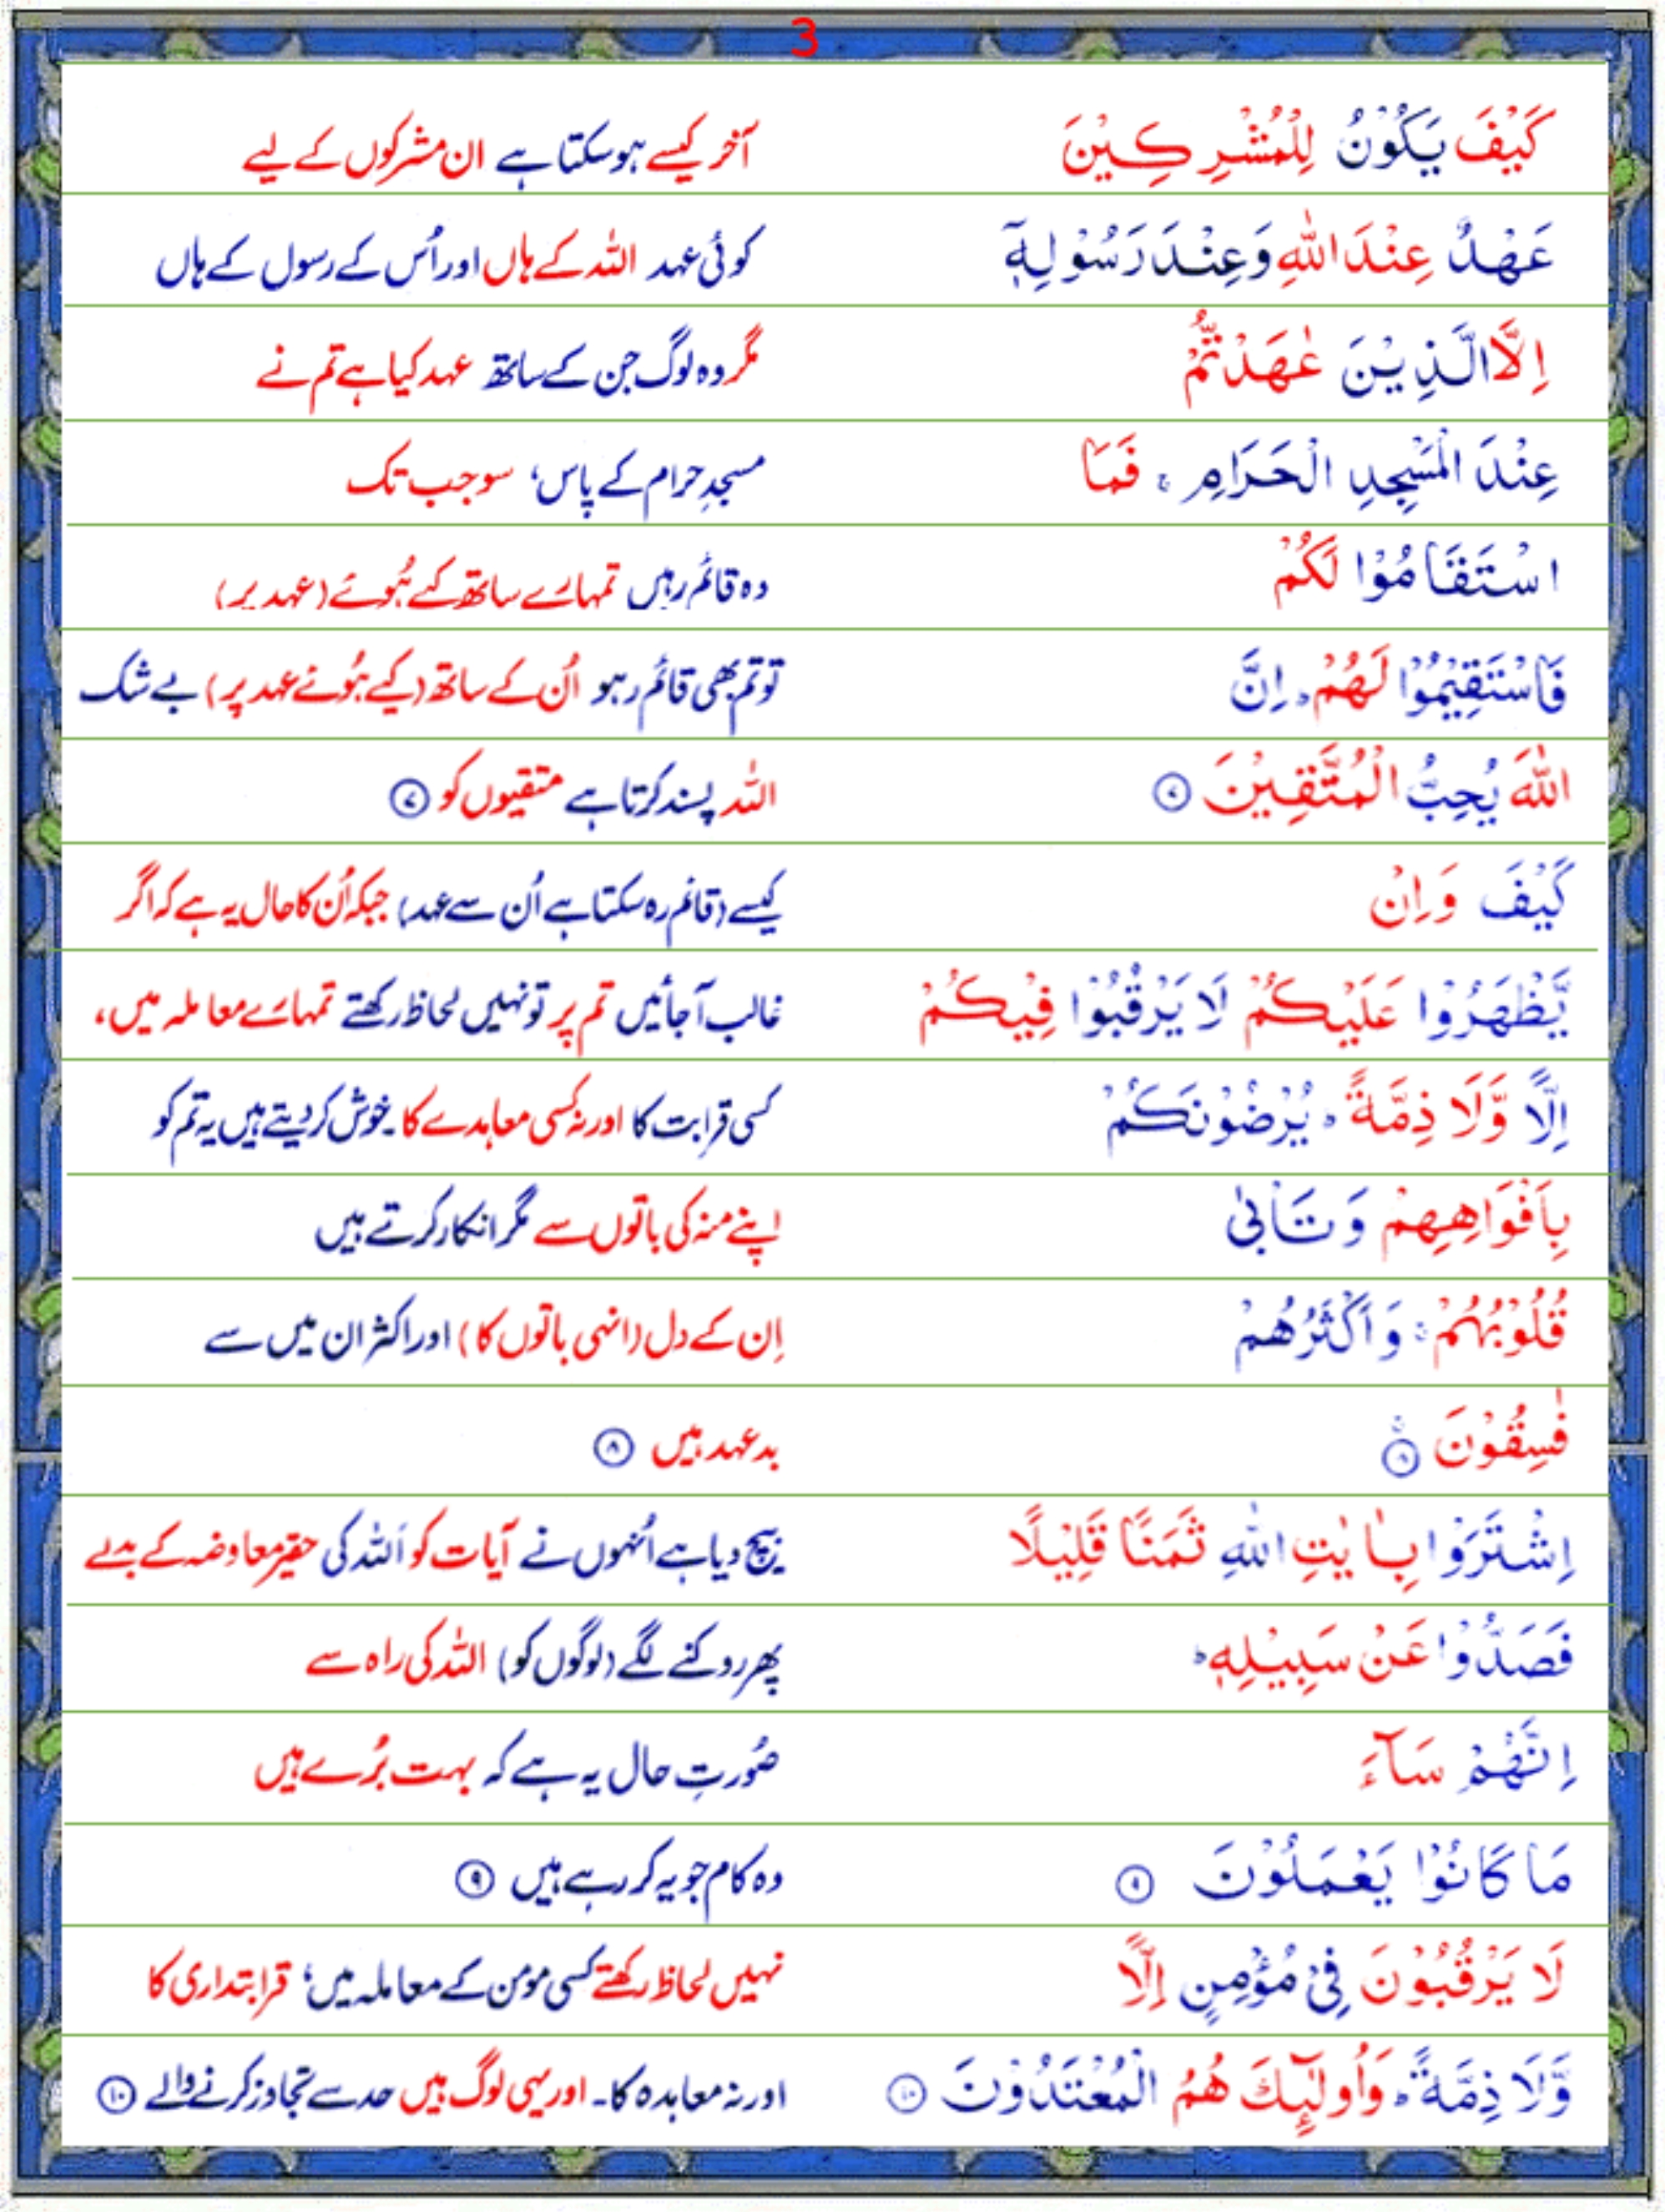 3
كَيْفَ يَكُوْنُ لِلْمُشْرِكِيْنَ آخر کیسے ہوسکتا ہے ان مشرکوں کے لیے
عَهْدٌ عِنْدَ اللّٰهِ وَعِنْدَ رَسُوْلِهٖٓ کوئی عہد اللہ کے ہاں اور اُس کے رسول کے ہاں
اِلَّا الَّذِيْنَ عٰهَدْتُّمْ مگر وہ لوگ جن کے ساتھ عہد کیا ہے تم نے
عِنْدَ الْمَسْجِدِ الْحَرَامِ ۚ فَمَا مسجدِ حرام کے پاس، سو جب تک
اسْتَقَامُوْا لَكُمْ وہ قائم رہیں تمہارے ساتھ کیے ہُوئے (عہد پر)
فَاسْتَقِيْمُوْا لَهُمْ ؕ اِنَّ تو تم بھی قائم رہو اُن کے ساتھ (کیے ہُوئے عہد پر) بے شک
اللّٰهَ يُحِبُّ الْمُتَّقِيْنَ ۷ اللہ پسند کرتا ہے متقیوں کو ۷
كَيْفَ وَاِنْ کیسے (قائم رہ سکتا ہے اُن سے عہد) جبکہ اُن کا حال یہ ہے کہ اگر
يَّظْهَرُوْا عَلَيْكُمْ لَا يَرْقُبُوْا فِيْكُمْ غالب آجائیں تم پر تو نہیں لحاظ رکھتے تمہارے معاملہ میں،
اِلًّا وَّلَا ذِمَّةً ؕ يُرْضُوْنَكُمْ کسی قرابت کا اور نہ کسی معاہدے کا۔ خوش کردیتے ہیں یہ تم کو
بِاَفْوَاهِهِمْ وَتَاْبٰى اپنے منہ کی باتوں سے مگر انکار کرتے ہیں
قُلُوْبُهُمْ ۚ وَاَكْثَرُهُمْ اِن کے دل (انہی باتوں کا) اور اکثر ان میں سے
فٰسِقُوْنَ ۸ بدعہد ہیں ۸
اِشْتَرَوْا بِاٰيٰتِ اللّٰهِ ثَمَنًا قَلِيْلًا بیچ دیا ہے اُنہوں نے آیات کو اللہ کی حقیر معاوضہ کے بدلے
فَصَدُّوْا عَنْ سَبِيْلِهٖ ؕ پھر روکنے لگے (لوگوں کو) اللہ کی راہ سے
اِنَّهُمْ سَآءَ صُورتِ حال یہ ہے کہ بہت بُرے ہیں
مَا كَانُوْا يَعْمَلُوْنَ ۹ وہ کام جو یہ کر رہے ہیں ۹
لَا يَرْقُبُوْنَ فِيْ مُؤْمِنٍ اِلًّا نہیں لحاظ رکھتے کسی مومن کے معاملہ میں، قرابتداری کا
وَّلَا ذِمَّةً ؕ وَاُولٰٓئِكَ هُمُ الْمُعْتَدُوْنَ ۱۰ اور نہ معاہدہ کا۔ اور یہی لوگ ہیں حد سے تجاوز کرنے والے ۱۰